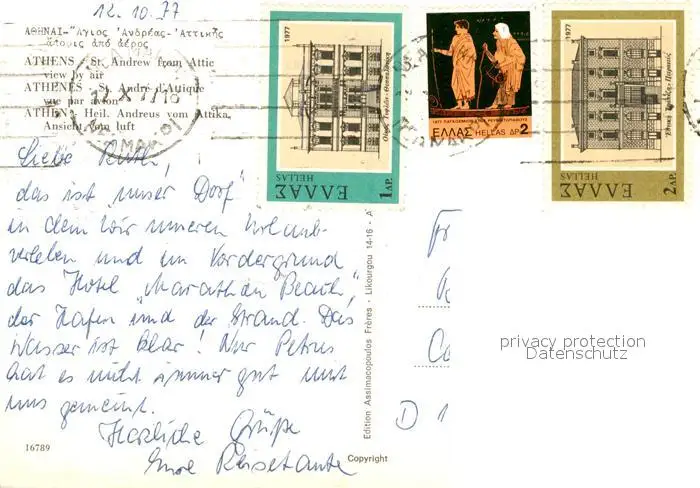 12.10.77
ΑΘΗΝΑΙ-Ἅγιος Ἀνδρέας-Ἀττικῆς
ἄποψις ἀπό ἀέρος
ATHENS St. Andrew from Attic
view by air
ATHENES St. André d'Attique
vue par avion
ATHEN Heil. Andreus vom Attika,
Ansicht vom luft
Liebe Ruth,
das ist „unser Dorf"
in dem wir unseren Urlaub
verleben und im Vordergrund
das Hotel „Marathon Beach",
der Hafen und der Strand. Das
Wasser ist klar! Nur Petrus
hat es nicht immer gut mit
uns gemeint.
Herzliche Grüße
Eure Reisetante
16789
Copyright
Edition Assimacopoulos Frères - Likourgou 14-16 - A
1977
ΕΛΛΑΣ
HELLAS
1 ΔΡ.
ΕΛΛΑΣ HELLAS ΔΡ 2
1977
ΕΛΛΑΣ
HELLAS
2 ΔΡ.
privacy protection
Datenschutz
D 1